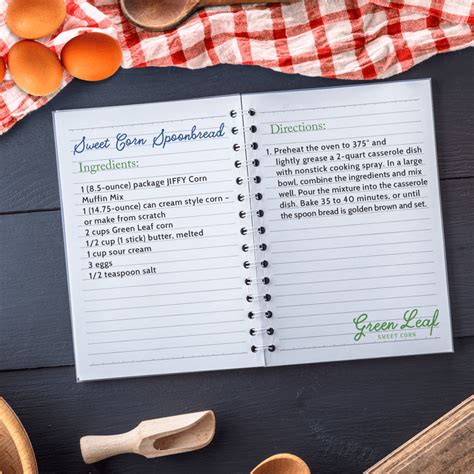 Sweet Corn Spoonbread
Ingredients:
1 (8.5-ounce) package JIFFY Corn
Muffin Mix
1 (14.75-ounce) can cream style corn –
or make from scratch
2 cups Green Leaf corn
1/2 cup (1 stick) butter, melted
1 cup sour cream
3 eggs
1/2 teaspoon salt
Directions:
1. Preheat the oven to 375° and
lightly grease a 2-quart casserole dish
with nonstick cooking spray. In a large
bowl, combine the ingredients and mix
well. Pour the mixture into the casserole
dish. Bake 35 to 40 minutes, or until
the spoon bread is golden brown and set.
Green Leaf
SWEET CORN